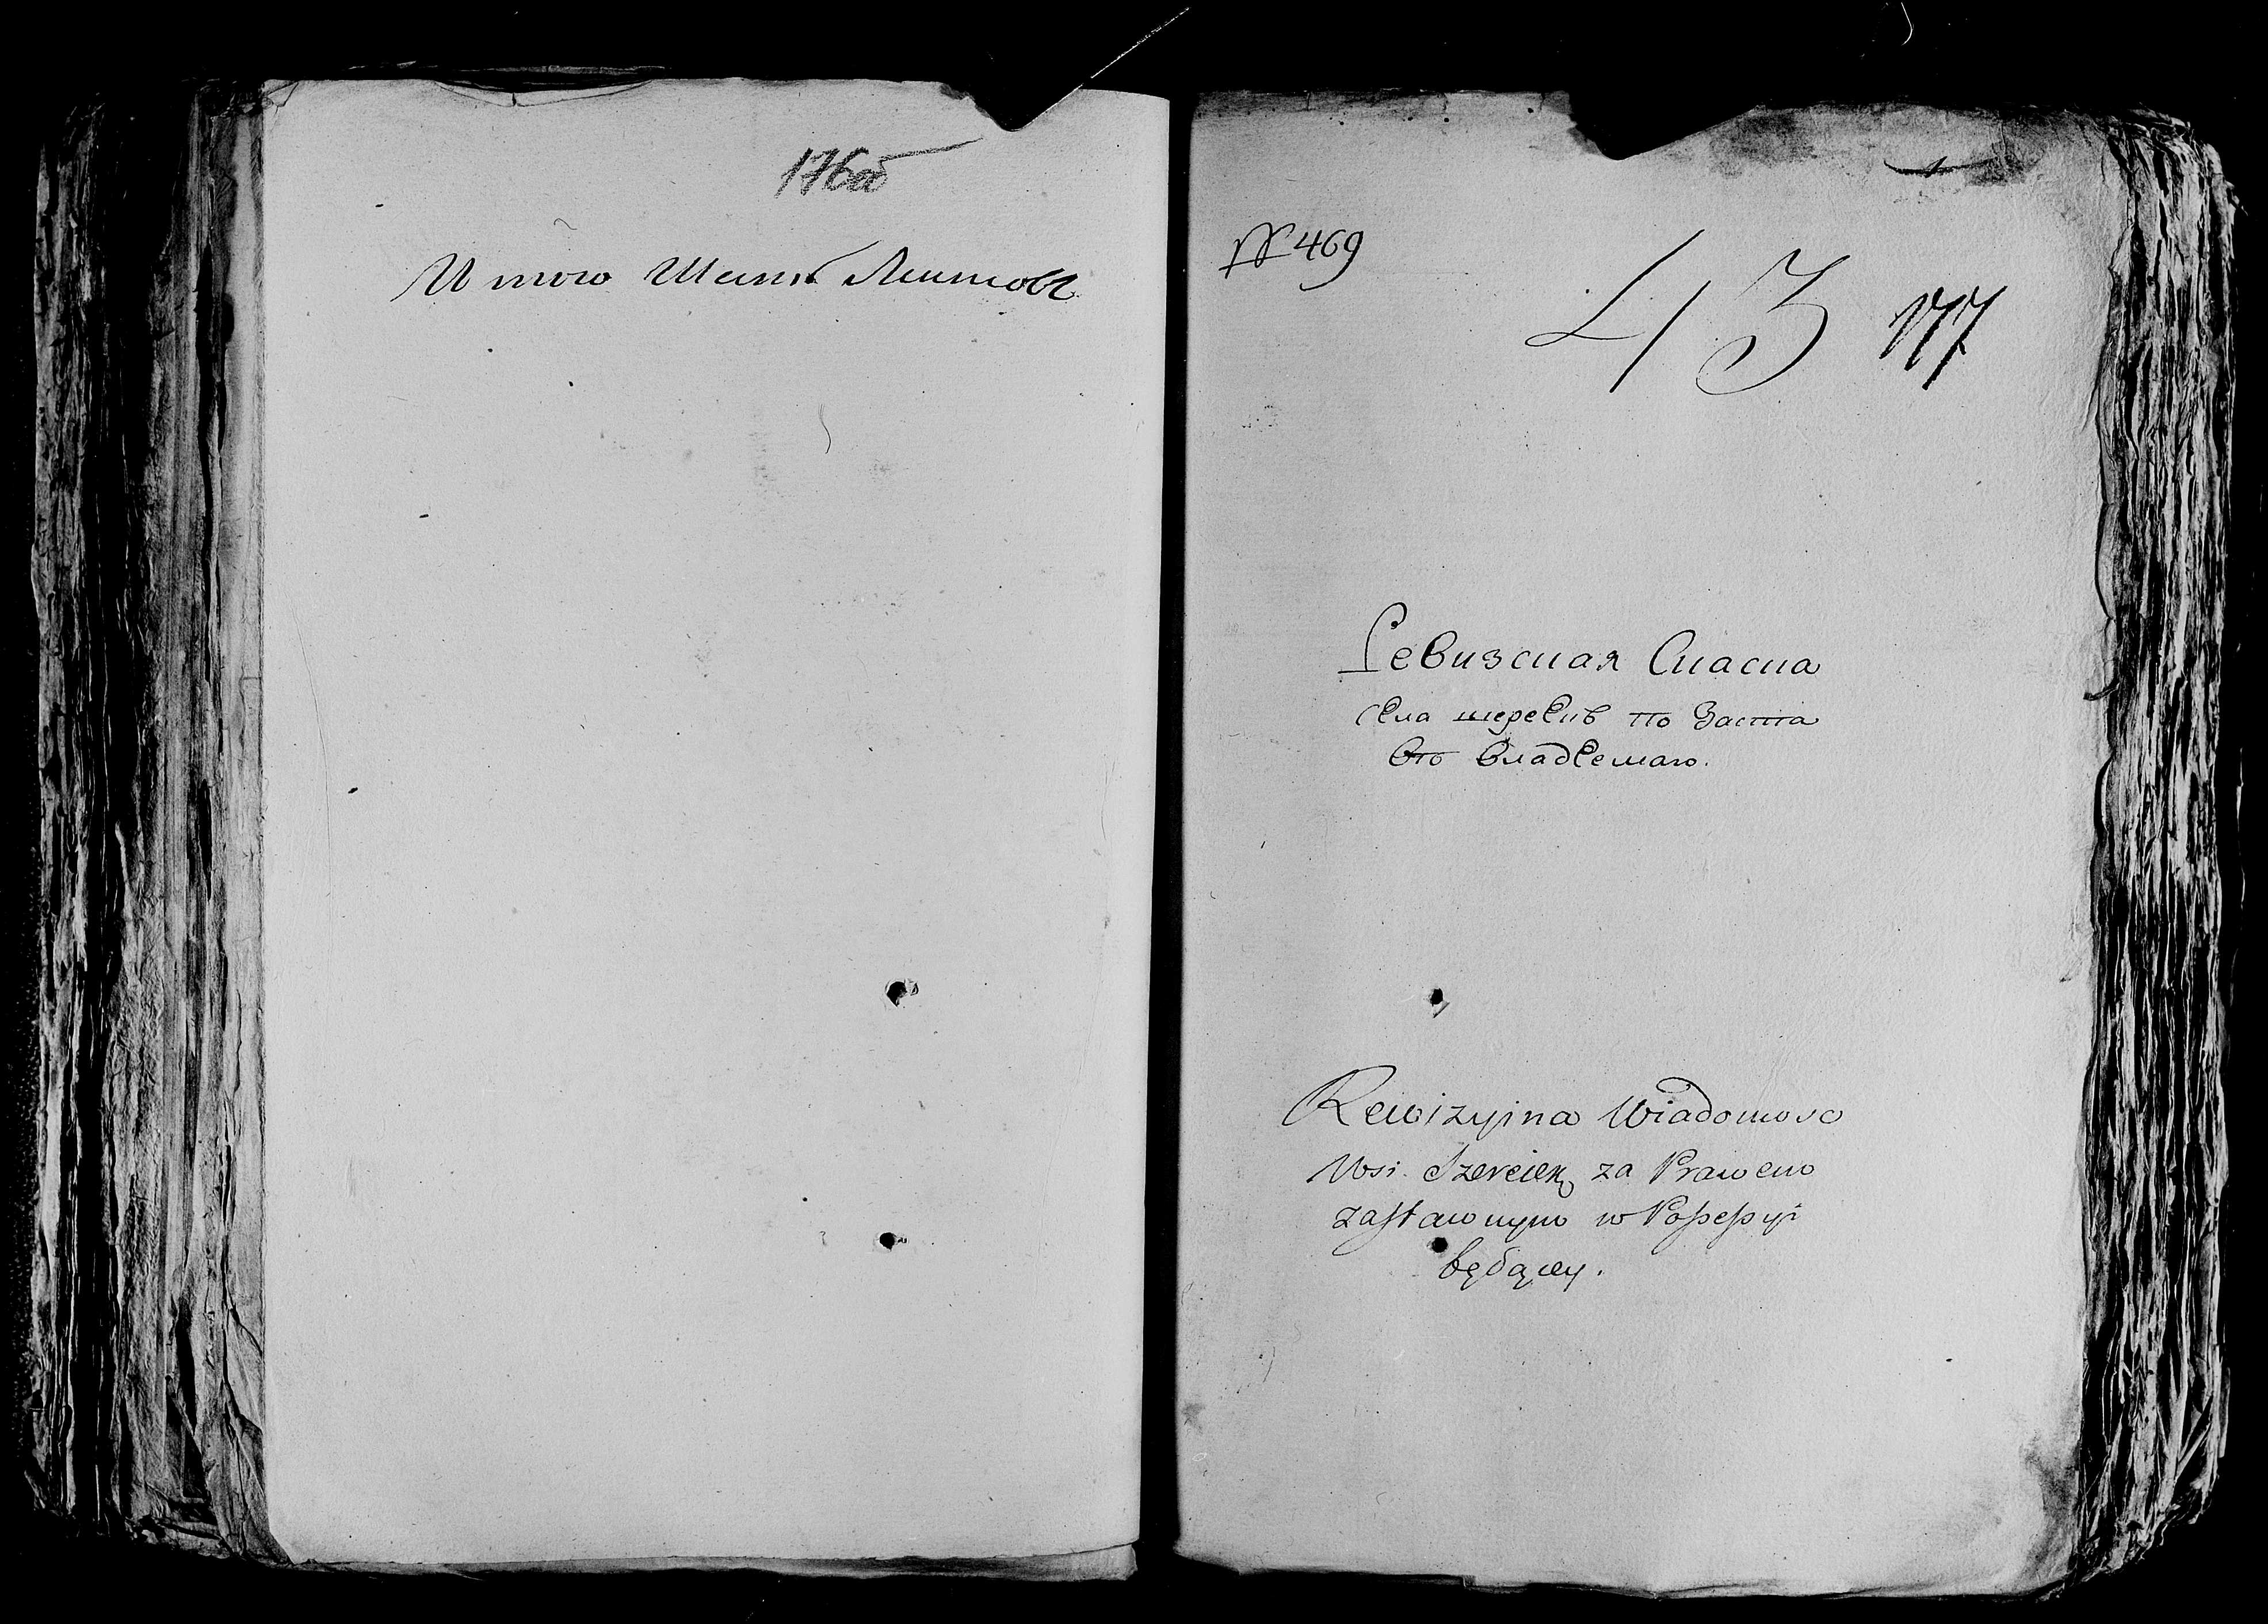 176об
Итого Шесть Листовъ
№ 469
43 177
Ревизская Скаска
села шеревкъ по Заста
вѣ владемаго.
Rewizyina Wiadomosc
Wsi Szerciek za Prawem
zastawnym w Possessyi
będącey.